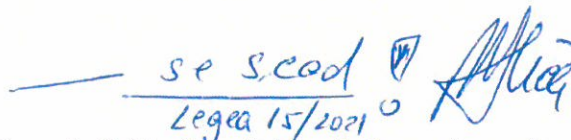 se scad
Legea 15/2021